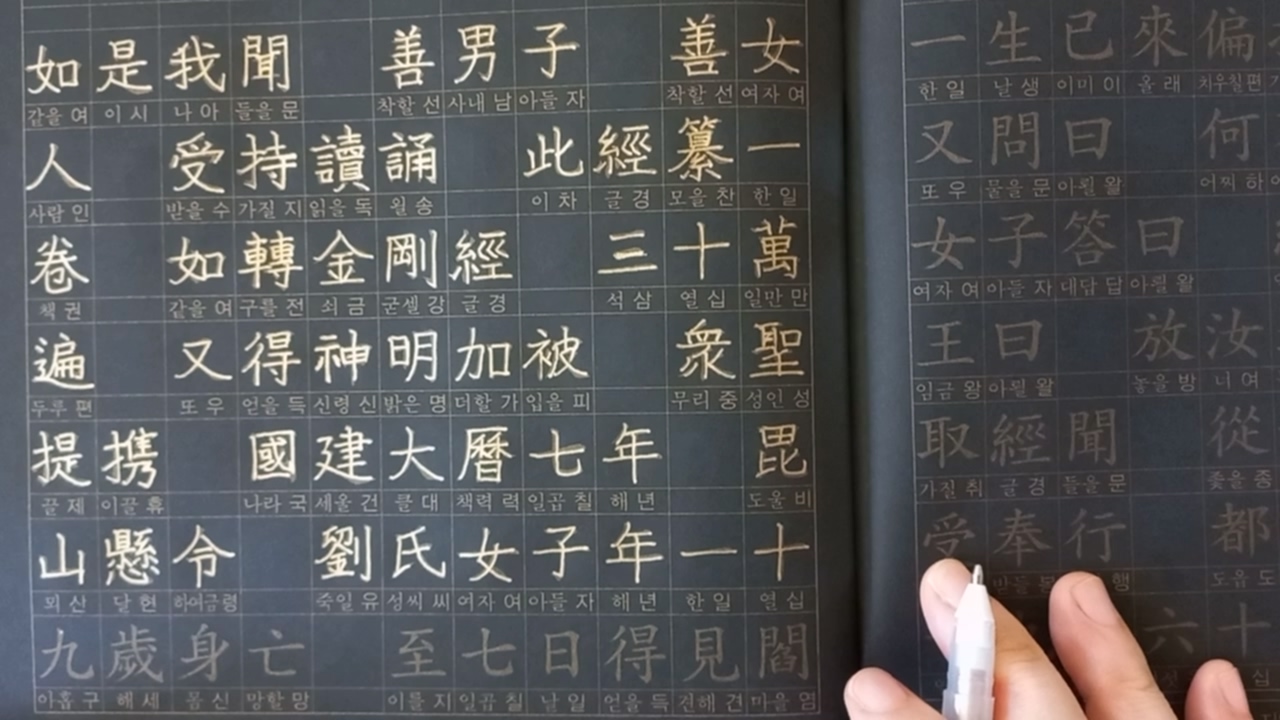 如是我聞 善男子 善女
같을 여 이 시 나 아 들을 문 착할 선 사내 남 아들 자 착할 선 여자 여
人 受持讀誦 此經纂一
사람 인 받을 수 가질 지 읽을 독 욀 송 이 차 글 경 모을 찬 한 일
卷 如轉金剛經 三十萬
책 권 같을 여 구를 전 쇠 금 굳셀 강 글 경 석 삼 열 십 일만 만
遍 又得神明加被 衆聖
두루 편 또 우 얻을 득 신령 신 밝은 명 더할 가 입을 피 무리 중 성인 성
提携 國建大曆七年 毘
끌 제 이끌 휴 나라 국 세울 건 클 대 책력 력 일곱 칠 해 년 도울 비
山懸令 劉氏女子年一十
뫼 산 달 현 하여금 령 죽일 유 성씨 씨 여자 여 아들 자 해 년 한 일 열 십
九歲身亡 至七日得見閻
아홉 구 해 세 몸 신 망할 망 이를 지 일곱 칠 날 일 얻을 득 견해 견 마을 염
一生已來偏
한 일 날 생 이미 이 올 래 치우칠 편
又問曰 何
또 우 물을 문 아뢸 왈 어찌 하
女子答曰
여자 여 아들 자 대답 답 아뢸 왈
王曰 放汝
임금 왕 아뢸 왈 놓을 방 너 여
取經聞 從
가질 취 글 경 들을 문 좇을 종
受奉行 都
받들 봉 행 도읍 도
六十